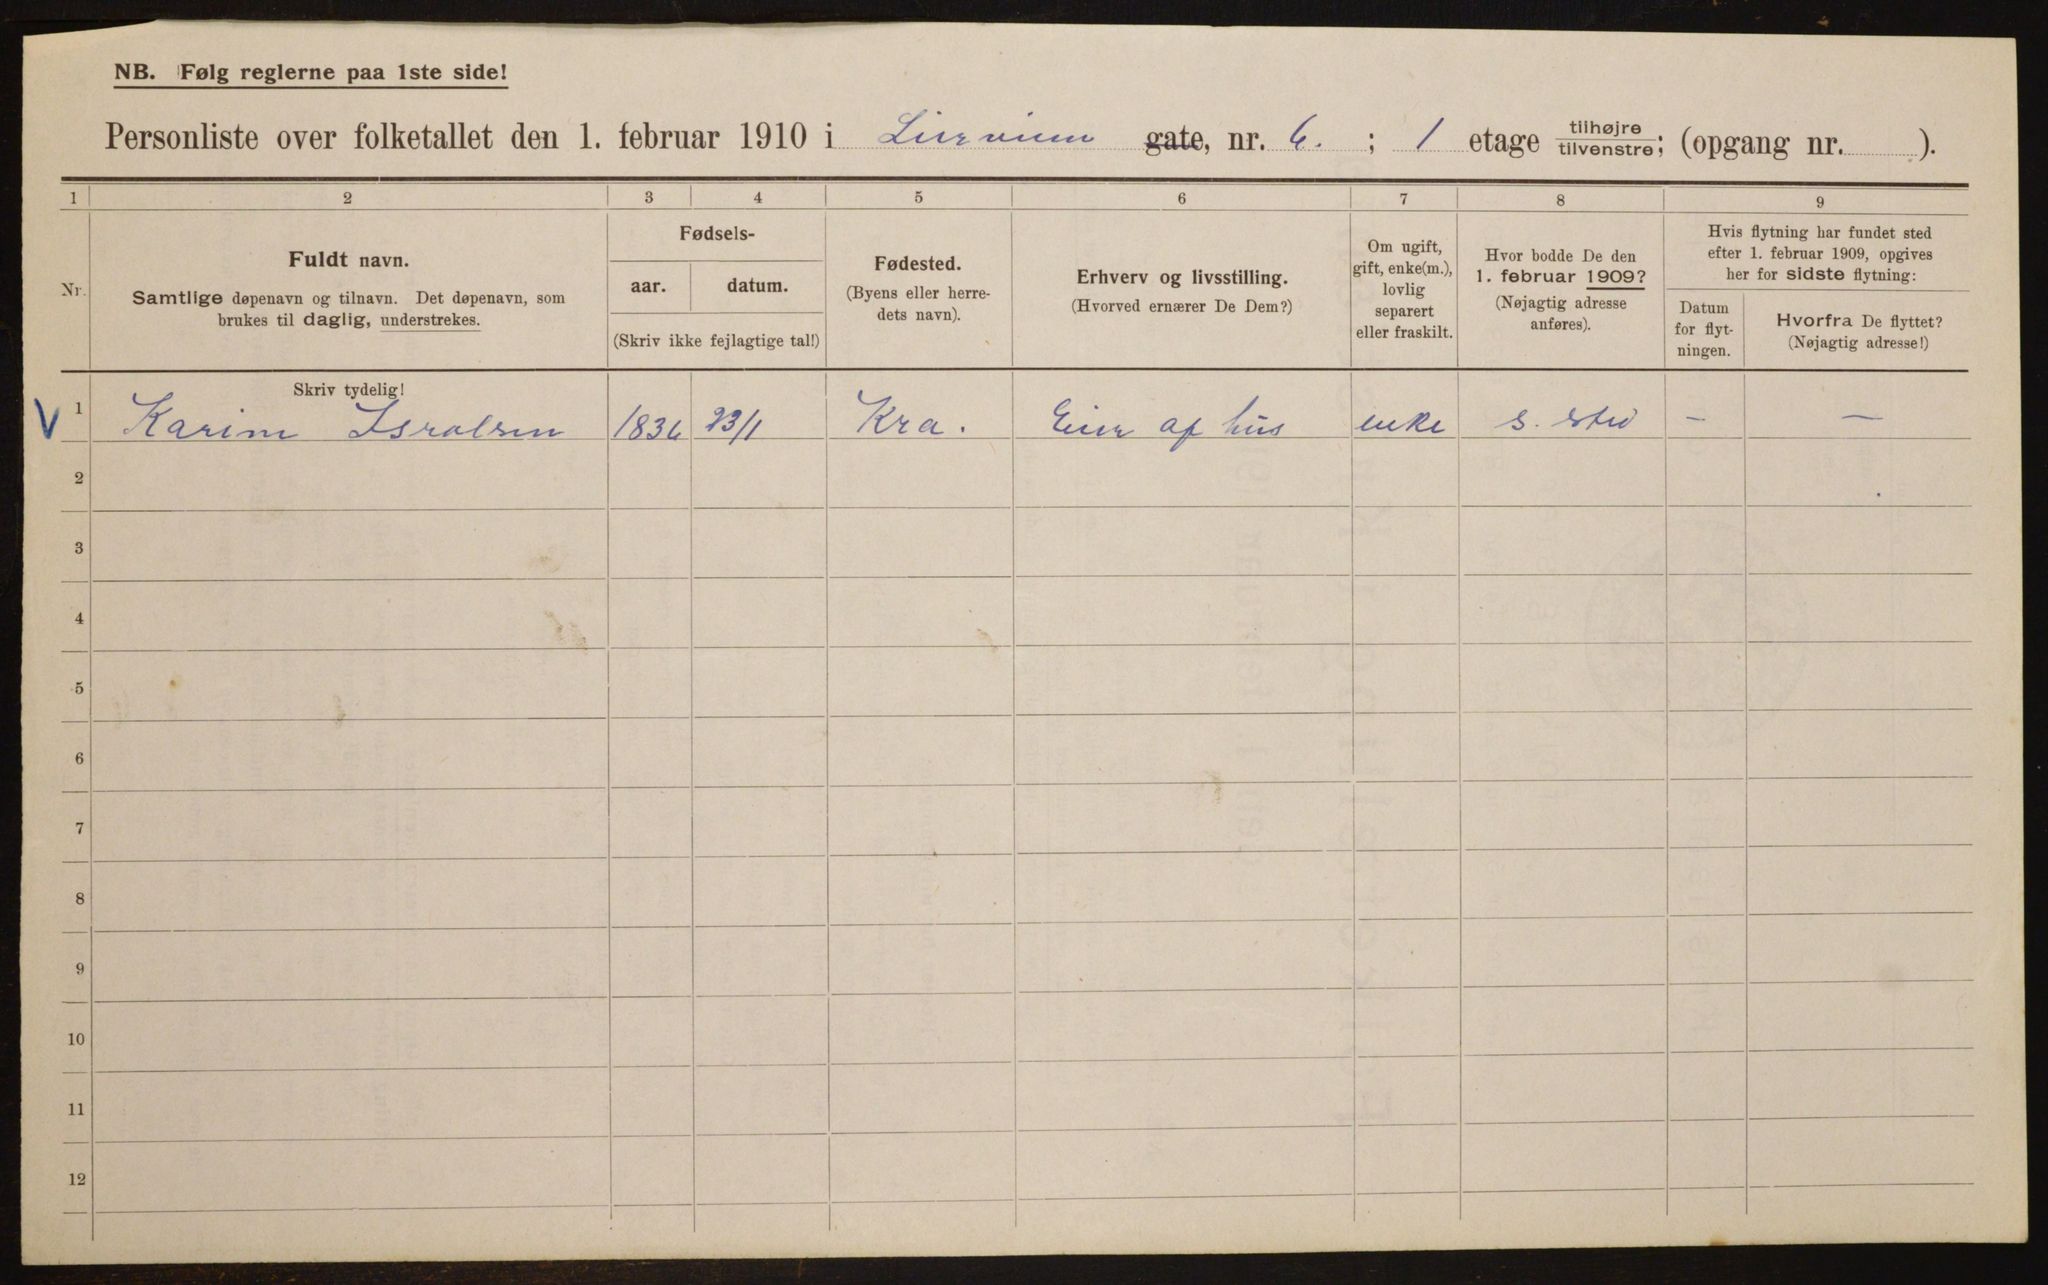 NB. Følg reglerne paa 1ste side!
Personliste over folketallet den 1. februar 1910 i Lierveien gate, nr. 6. ; 1 etage tilhøjre tilvenstre; (opgang nr. ).
1 2 3 4 5 6 7 8 9
Nr.
Fuldt navn.
Samtlige døpenavn og tilnavn. Det døpenavn, som
brukes til daglig, understrekes.
Fødsels-
aar. datum.
(Skriv ikke fejlagtige tal!)
Fødested.
(Byens eller herre-
dets navn).
Erhverv og livsstilling.
(Hvorved ernærer De Dem?)
Om ugift,
gift, enke(m.),
lovlig
separert
eller fraskilt.
Hvor bodde De den
1. februar 1909?
(Nøjagtig adresse
anføres).
Hvis flytning har fundet sted
efter 1. februar 1909, opgives
her for sidste flytning:
Datum
for flyt-
ningen.
Hvorfra De flyttet?
(Nøjagtig adresse!)
Skriv tydelig!
V 1 Karine Isralsen 1836 23/1 Kra. Eier af hus enke s. sted – –
2
3
4
5
6
7
8
9
10
11
12